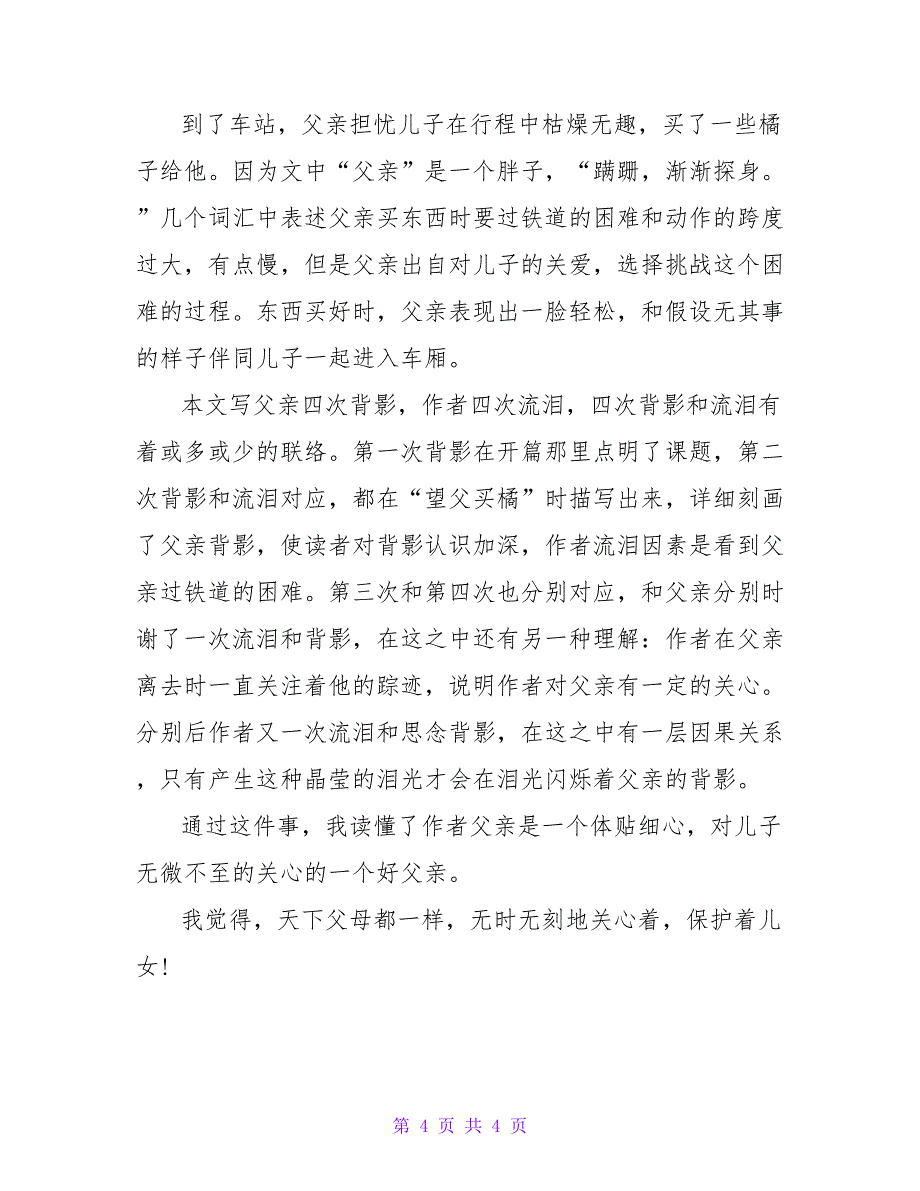 到了车站，父亲担忧儿子在行程中枯燥无趣，买了一些橘
子给他。因为文中“父亲”是一个胖子，“蹒跚，渐渐探身。
”几个词汇中表述父亲买东西时要过铁道的困难和动作的跨度
过大，有点慢，但是父亲出自对儿子的关爱，选择挑战这个困
难的过程。东西买好时，父亲表现出一脸轻松，和假设无其事
的样子伴同儿子一起进入车厢。
本文写父亲四次背影，作者四次流泪，四次背影和流泪有
着或多或少的联络。第一次背影在开篇那里点明了课题，第二
次背影和流泪对应，都在“望父买橘”时描写出来，详细刻画
了父亲背影，使读者对背影认识加深，作者流泪因素是看到父
亲过铁道的困难。第三次和第四次也分别对应，和父亲分别时
谢了一次流泪和背影，在这之中还有另一种理解：作者在父亲
离去时一直关注着他的踪迹，说明作者对父亲有一定的关心。
分别后作者又一次流泪和思念背影，在这之中有一层因果关系
，只有产生这种晶莹的泪光才会在泪光闪烁着父亲的背影。
通过这件事，我读懂了作者父亲是一个体贴细心，对儿子
无微不至的关心的一个好父亲。
我觉得，天下父母都一样，无时无刻地关心着，保护着儿
女！
第 4 页 共 4 页